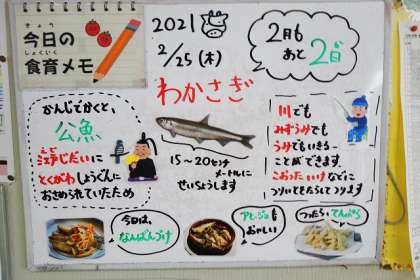 きょう
今日の
しょくいく
食育メモ
2021
2/25(木)
2月も
あと2日
わかさぎ
かんじでかくと、
公魚
えど
江戸じだいに
とくがわしょうぐんに
おさめられていたため
15〜20センチ
メートルに
せいちょうします
川でも
みずうみでも
うみでもいきる
ことができます。
こおったいけなどに
つりいとをたらしてつります
今日は、
なんばんづけ
アヒージョも
おいしい
つったら、てんぷら